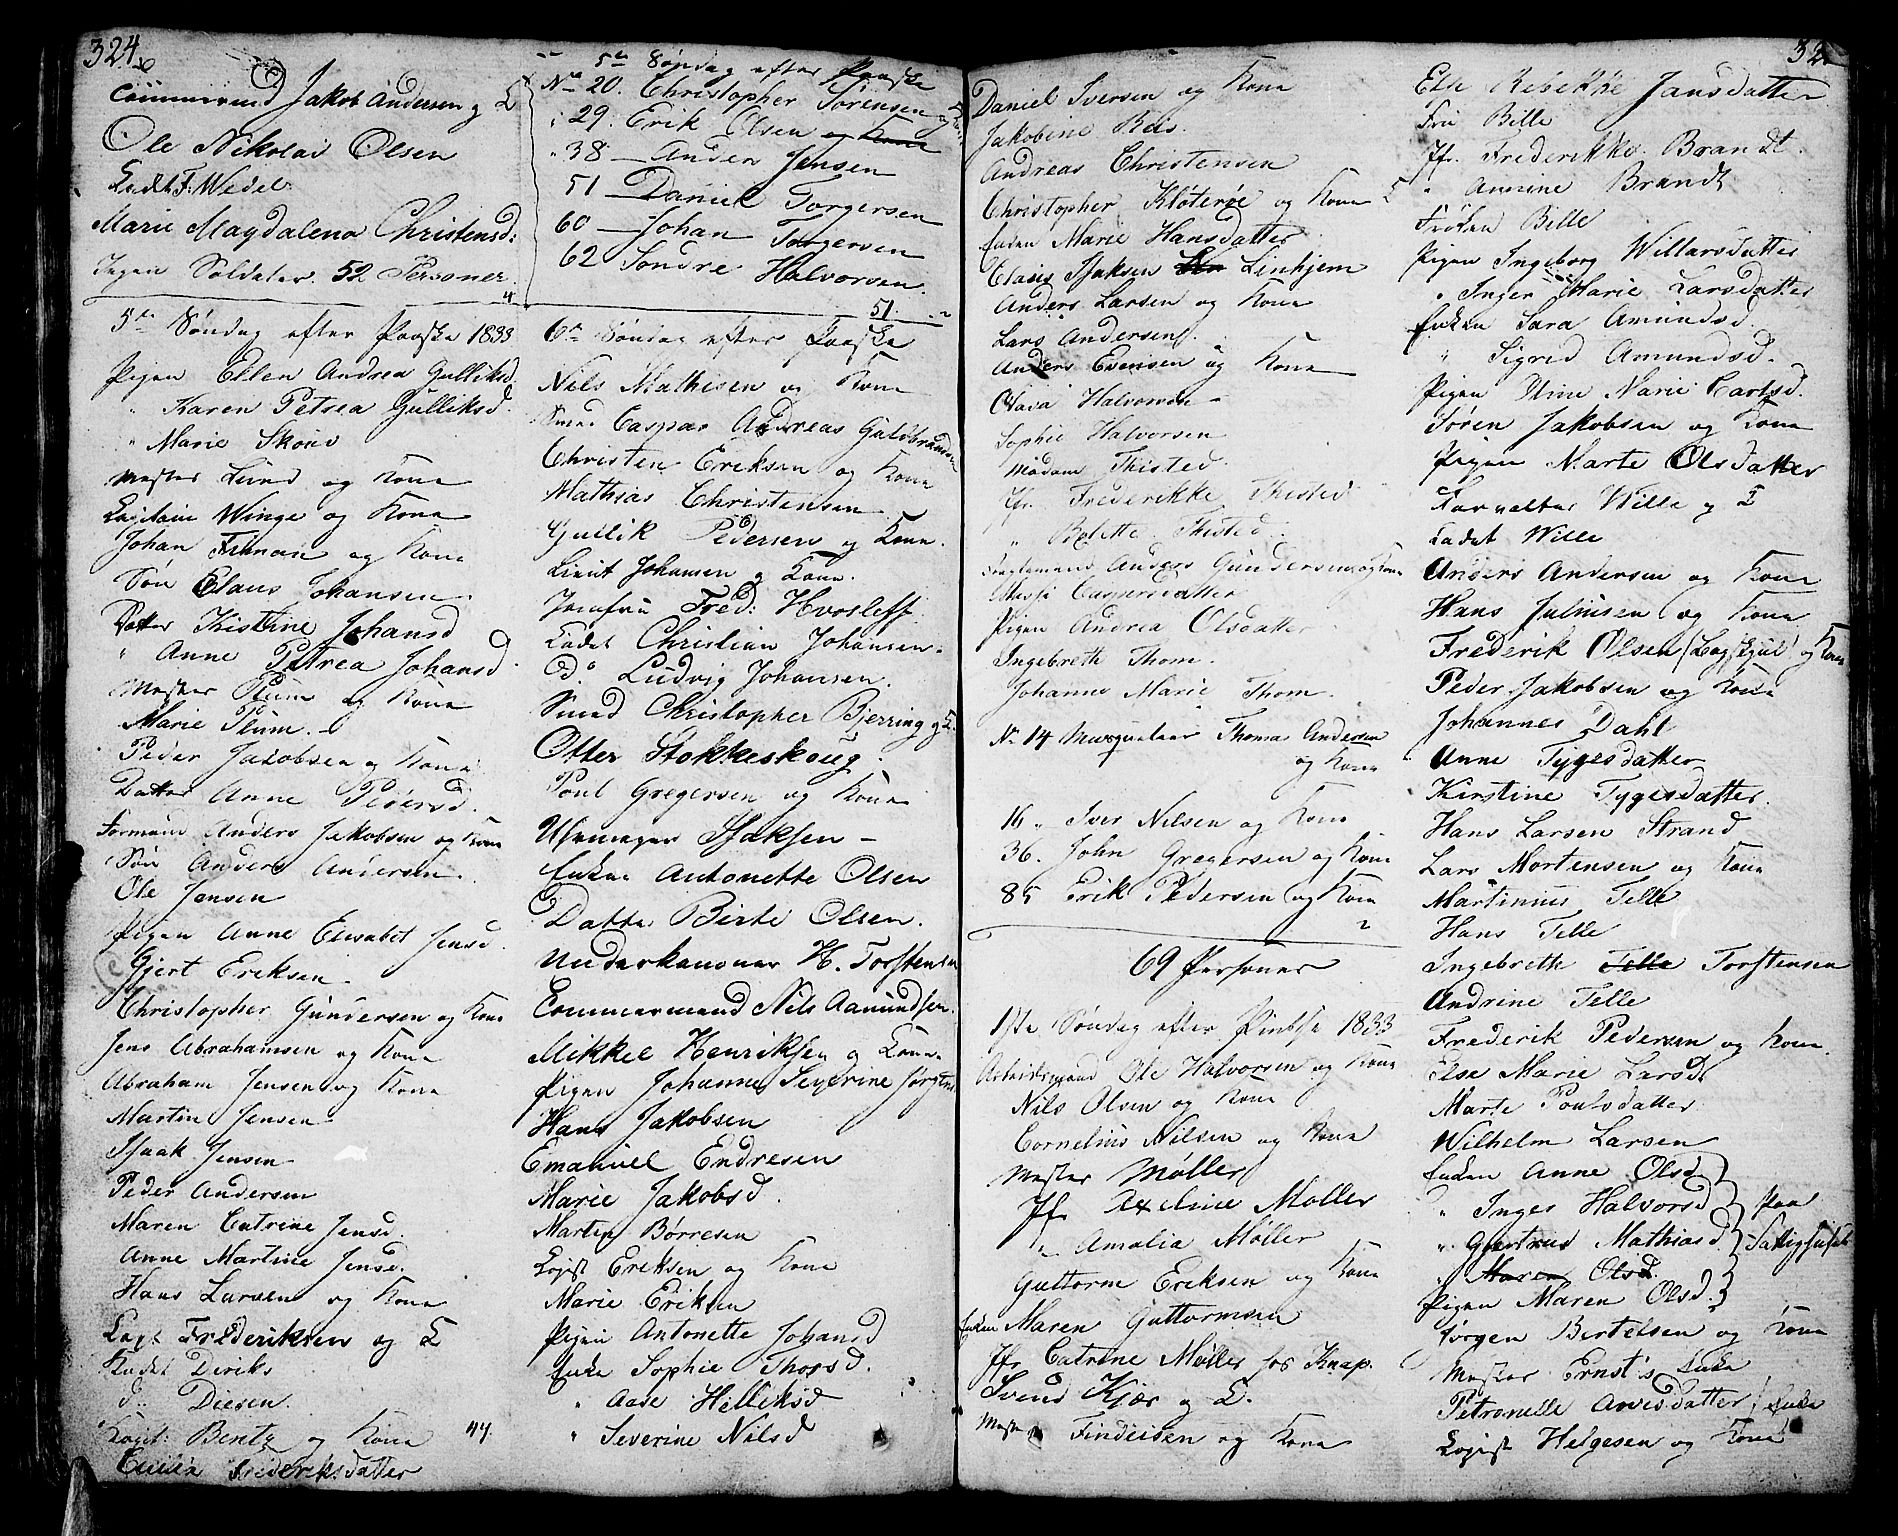 324
Commermd Jakob Andersen og K
Ole Nikolai Olsen
Cadt F. Wedel
Marie Magdalena Christensd:
Ingen Soldater. 52 Personer
5te Søndag efter Paaske 1833
Pigen Ellen Andrea Gulliksd
" Karen Petrea Gulliksd.
" Marie Skou
Mester Lund og Kone
Capitain Winge og Kone
Johan Friman og Kone
Søn Claus Johansen
Datter Kistine Johansd
" Anne Petrea Johansd
Mester Plum og Kone
Marie Plum
Peder Jakobsen og Kone
Datter Anne Pedersd.
Formand Anders Jakobsen og Kone
Søn Anders Andersen
Ole Jensen
Pigen Anne Elisabet Jensd.
Gjert Eriksen
Christopher Gundersen og Kone
Jens Abrahamsen og Kone
Abraham Jensen og Kone
Martin Jensen
Isaak Jensen
Peder Andersen
Maren Catrine Jensd.
Anne Martine Jensd.
Hans Larsen og Kone
Capt Frideriksen og K
Kadet Deriks
d.. Diesen
Capt: Bentz og Kone 44.
Frideriksdatter
5te Søndag efter Paaske
No 20. Christopher Sørensen og Kone
" 29. Erik Olsen og Kone
" 38 Anden Jensen
51 Daniel Torgersen
60 Johan Torgersen
62 Søndre Halvorsen
51.
6te Søndag efter Paaske
Nils Mathisen og Kone
Smed Caspar Andreas Guldbrandsen
Christen Eriksen og Kone
Mathias Christensen
Gullik Pedersen og Kone.
Lieut Johansen og Kone.
Jomfru Fred: Hvosleff
Cadet Christian Johansen
Do Ludvig Johansen.
Smed Christopher Bjerring og K.
Otter Stokkeskoug
Poul Gregersen og Kone
Isaksen
Enke Antonette Olsen
Datter Birte Olsen.
Underkanoner H. Torstensen
Commermand Nils Aamundsen.
Mikkel Henriksen og Kone
Pigen Johanne Severine Jørgens
Hans Jakobsen
Emanuel Endresen
Marie Jakobsd.
Marten Børresen
Logist Eriksen og Kone
Marie Eriksen
Pigen Antonette Johansd
Enke Sophie Thorsd.
" Aase Helliksd
" Severine Nilsd
Daniel Iversen og Kone
Jakobine Beis.
Andreas Christensen
Christopher Kløterøe og Kone
Enken Marie Hansdatter
Claus Isaksen Linhjem
Anders Larsen og Kone
Lars Andersen
Anders Evensen og Kone
Olava Halvorsen
Sophie Halvorsen
Madam Thisted.
Jfr. Frederikke Thisted
" Bolette Thisted
Anders Gundersen og Kone
Pigen Andrea Olsdatter
Ingebreth Thom.
Johanne Marie Thom.
No 14 Musqueteer Thomas Andersen
og Kone
16 " Iver Nilsen og Kone
36. John Gregersen og Kone
85 Erik Pedersen og Kone
69 Personer
1ste Søndag efter Pintse 1833
Arbeidsmand Ole Halvorsen og Kone
Nils Olsen og Kone
Cornelius Nilsen og Kone
Mester Møller
Jfr. Axeline Møller
" Amalia Møller
Guttorm Eriksen og Kone
Enken Maren Guttormsen
Jfr Catrine Møller hos Knap.
Svend Kjær og K.
Mester Findeisen og Kone
Else Rebekke Jansdatter
Fru Bille
Jfr. Frederikke Brandt.
" Annine Brandt
Frøken Bille
Pigen Ingeborg Willarsdatter
" Inger Marie Larsdatter
Enken Sara Amundsd.
" Sigrid Amundsd.
Pigen Stine Marie Carlsd.
Søren Jakobsen og Kone
Pigen Marte Olsdatter
Forvalter Wille og K
Cadet Wille
Anders Andersen og Kone
Hans Juliusen og Kone
Frederik Olsen (Bogskjul) og Kone
Peder Jakobsen og Kone
Johannes Dahl
Anne Tygesdatter
Kirstine Tygesdatter.
Hans Larsen Strand
Lars Mortensen og Kone
Martinius Telle
Hans Telle
Ingebreth Telle Torstensen
Andrine Telle
Frederik Pedersen og Kone
Else Marie Larsd
Marte Poulsdatter
Wilhelm Larsen
Enken Anne Olsd
" Inger Halvorsd Paa
" Gjertrud Mathiasd Fattighuset
" Maren Olsd.
Pigen Maren Olsd.
Jørgen Bertelsen og Kone
Mester Ernst's Enke
Petronelle Arvesdatter Enke
Logist Helgesen og Kone